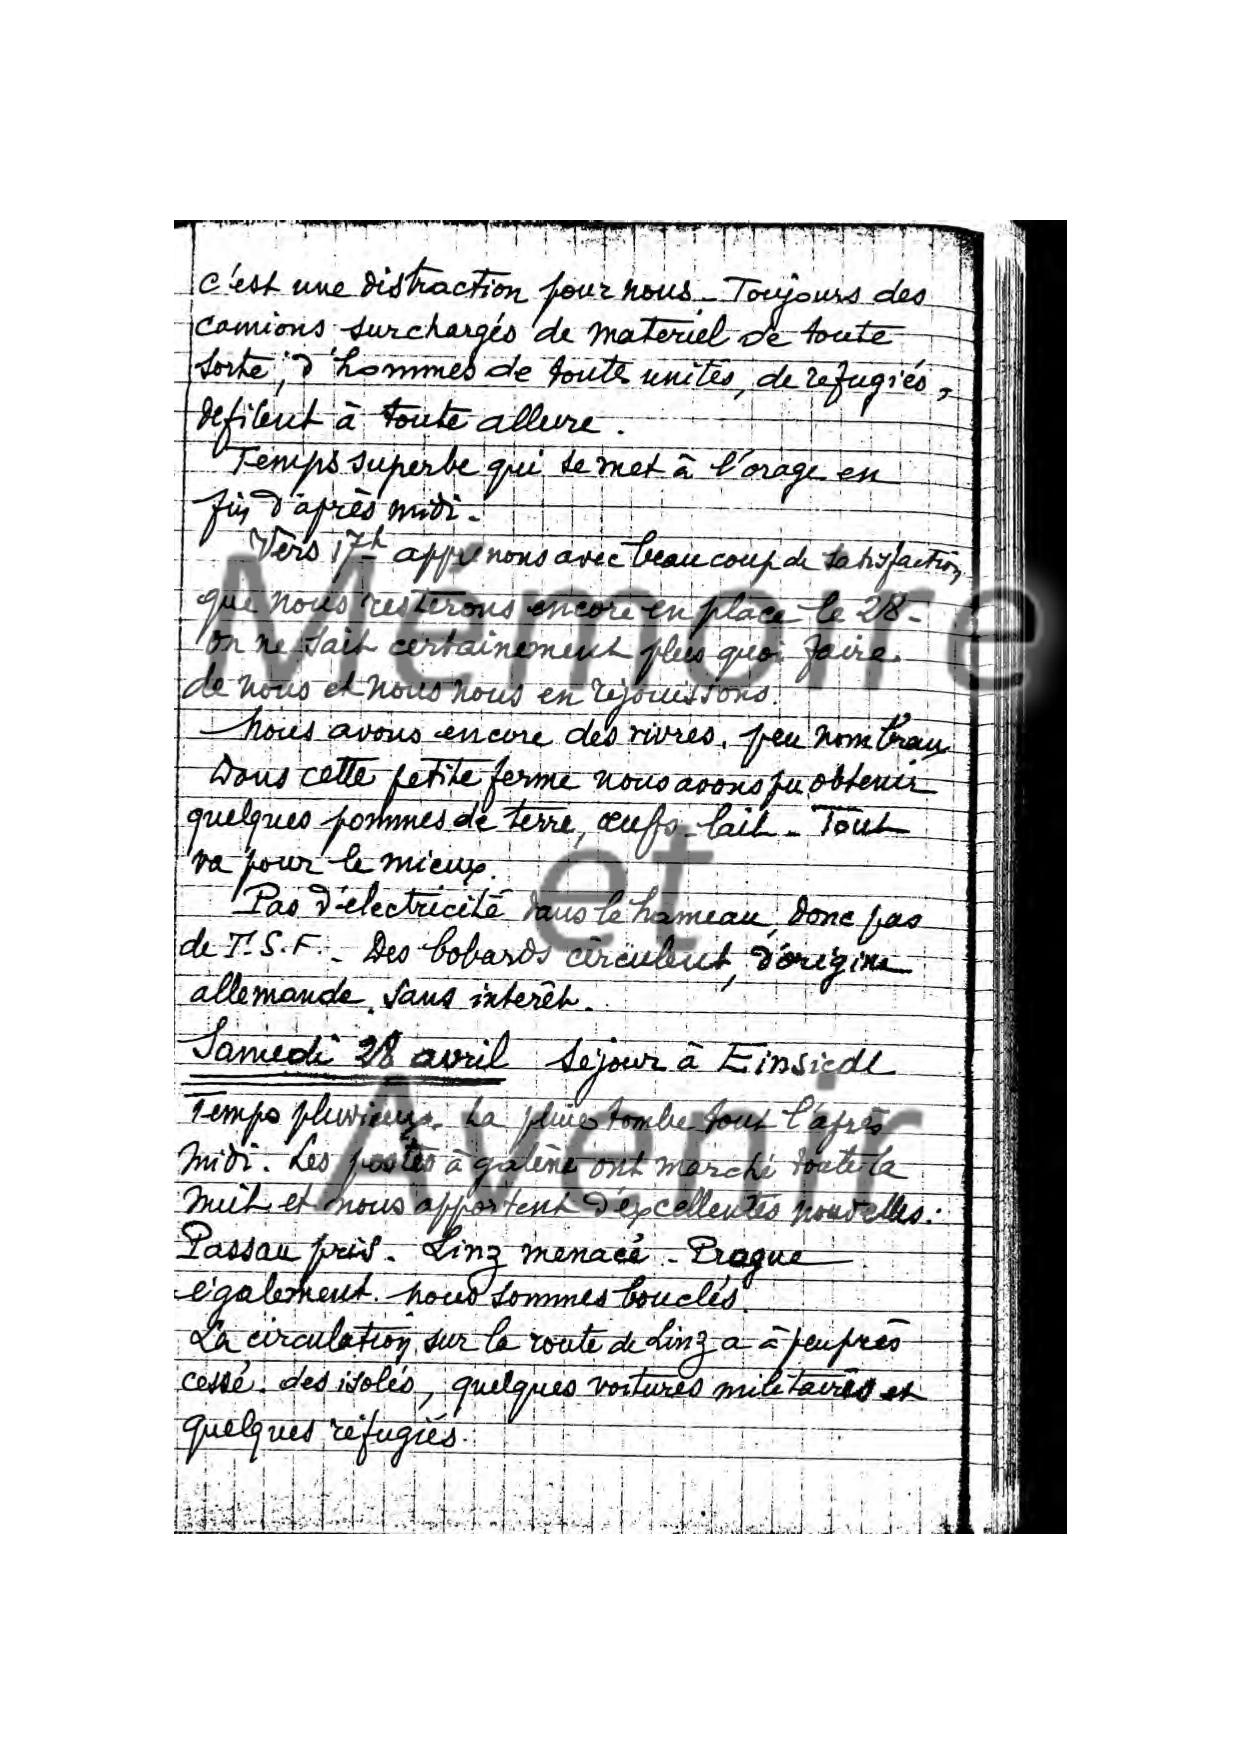 c'est une distraction pour nous - Toujours des
camions surchargés de matériel de toute
sorte, d'hommes de toute unités, de refugiés,
defilent à toute allure.
Temps superbe qui se met à l'orage en
fin d'après midi.
Vers 17h apprenons avec beaucoup de satisfaction
que nous resterons encore en place le 28 -
on ne sait certainement plus quoi faire
de nous et nous nous en réjouissons.
Nous avons encore des vivres. peu nombreux
Dans cette petite ferme nous avons pu obtenir
quelques pommes de terre, œufs - lait - Tout
va pour le mieux.
Pas d'électricité dans le hameau, donc pas
de T.S.F. - Des bobards circulent, d'origine
allemande. Sans interêt.
Samedi 28 avril séjour à Einsiedl
Temps pluvieux. La pluie tombe tout l'après
midi. Les postes à galène ont marché toute la
nuit et nous apportent d'excellentes nouvelles:
Passau pris. Linz menacé - Prague
également. nous sommes bouclés.
La circulation sur la route de Linz a à peu près
cessé. des isolés, quelques voitures militaires et
quelques réfugiés.
Mémoire
et
Avenir